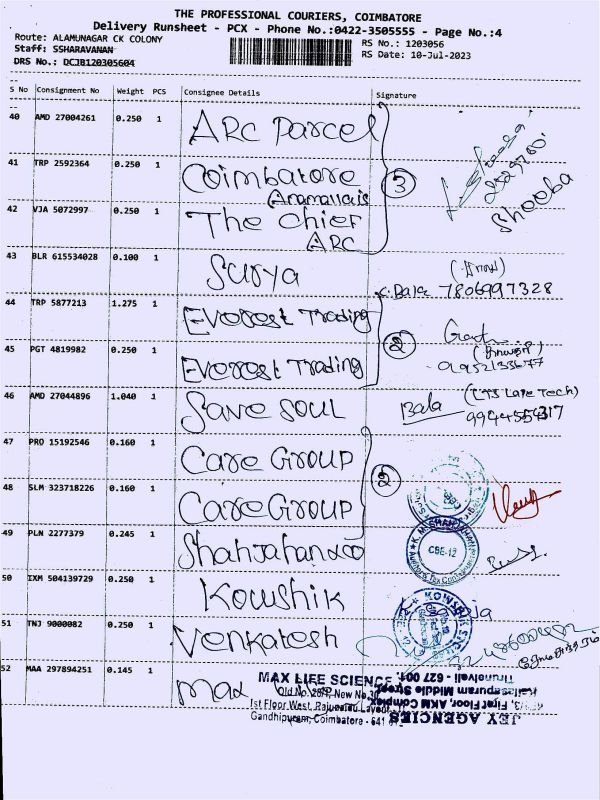 THE PROFESSIONAL COURIERS, COIMBATORE
Delivery Runsheet - PCX - Phone No.:0422-3505555 - Page No.:4
Route: ALAMUNAGAR CK COLONY
RS No.: 1203056
Staff: SSHARAVANAN
RS Date: 10-Jul-2023
DRS No.: DCJB120305604
S No Consignment No Weight PCS Consignee Details Signature
40 AMD 27004261 0.250 1 ARC Parcel
41 TRP 2592364 0.250 1 Coimbatore
Aramallais
3
Shooba
42 VJA 5072997 0.250 1 The Chief
ARC
43 BLR 615534028 0.100 1 Surya
Bala 7806997328
44 TRP 5877213 1.275 1 Everest Trading
2
45 PGT 4819982 0.250 1 Everest Trading
9952133677
46 AMD 27044896 1.040 1 Save SOUL
Bala
9944554317
47 PRO 15192546 0.160 1 Care Group
2
48 SLM 323718226 0.160 1 Care Group
49 PLN 2277379 0.245 1 Shahjahan & co
CBE-12
50 IXM 504139729 0.250 1 Kowshik
51 TNJ 9000082 0.250 1 Venkatesh
52 MAA 297894251 0.145 1 Max
MAX LIFE SCIENCE
Old No. New No.
1st Floor West,
Gandhipuram, Coimbatore - 641
JEY AGENCIES
First Floor, AKM Complex
Kailasapuram Middle Street
Tirunelveli - 627 001